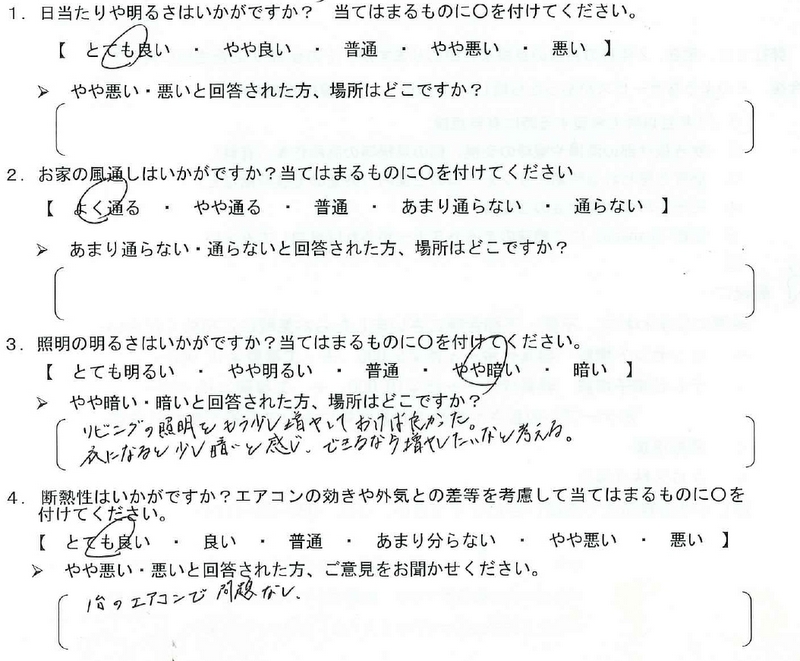 1．日当たりや明るさはいかがですか？　当てはまるものに〇を付けてください。
【　とても良い　・　やや良い　・　普通　・　やや悪い　・　悪い　】
➢　やや悪い・悪いと回答された方、場所はどこですか？
2．お家の風通しはいかがですか？当てはまるものに〇を付けてください
【　よく通る　・　やや通る　・　普通　・　あまり通らない　・　通らない　】
➢　あまり通らない・通らないと回答された方、場所はどこですか？
3．照明の明るさはいかがですか？当てはまるものに〇を付けてください。
【　とても明るい　・　やや明るい　・　普通　・　やや暗い　・　暗い　】
➢　やや暗い・暗いと回答された方、場所はどこですか？
リビングの照明をもう少し増やしておけば良かった。
夜になると少し暗いと感じ、できるなら増やしたいなと考える。
4．断熱性はいかがですか？エアコンの効きや外気との差等を考慮して当てはまるものに〇を
付けてください。
【　とても良い　・　良い　・　普通　・　あまり分らない　・　やや悪い　・　悪い　】
➢　やや悪い・悪いと回答された方、ご意見をお聞かせください。
1台のエアコンで問題なし、